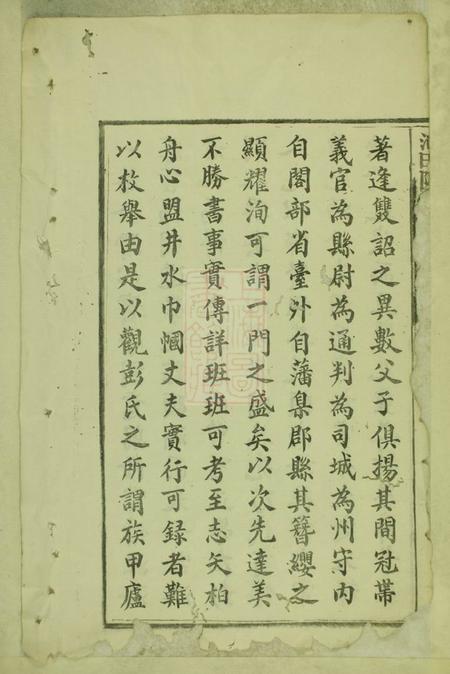 著逢雙詔之異數父子俱揚其間冠帶
義官為縣尉為通判為司城為州守內
自閣部省臺外自藩臬郡縣其簪纓之
顯耀洵可謂一門之盛矣以次先達美
不勝書事實傳詳班班可考至志矢柏
舟心盟井水巾幗丈夫實行可録者難
以枚舉由是以觀彭氏之所謂族甲廬